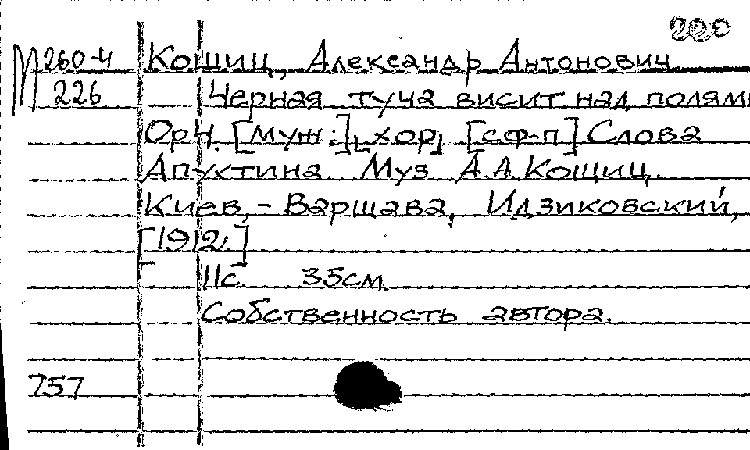 220
М 260-4 Кошиц, Александр Антонович
226 Черная туча висит над полями
Ор. 4. [муж.], хор, [с ф-п] Слова
Апухтина Муз А.А.Кошиц.
Киев, - Варшава, Идзиковский,
[1912.]
11с. 35см.
Собственность автора.
757